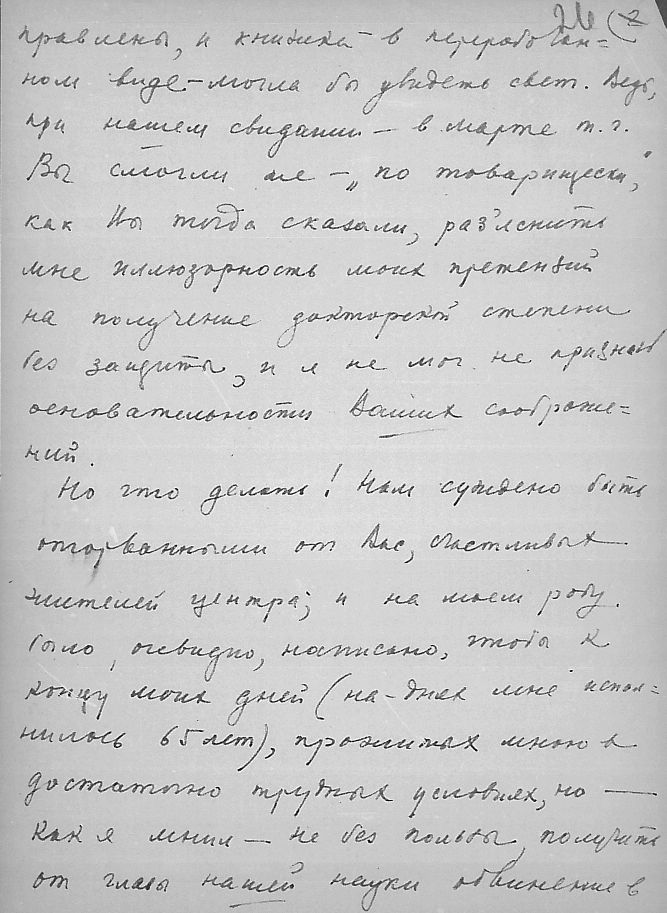 26 2
правлены, и книжка в переработан=
ном виде – могла бы увидеть свет. Ведь,
при нашем свидании – в марте т. г.
Вы смогли же – „по товарищески",
как Вы тогда сказали, раз'яснить
мне иллюзорность моих претензий
на получение докторской степени
без защиты, и я не мог не признать
основательности Ваших соображе=
ний.
Но что делать! Нам суждено быть
оторванными от Вас, счастливых
жителей центра; и на моем роду
было, очевидно, написано, чтобы к
концу моих дней (на-днях мне испол=
нилось 65 лет), прожитых мною в
достаточно трудных условиях, но —
как я мнил – не без пользы, получить
от главы нашей науки обвинение в